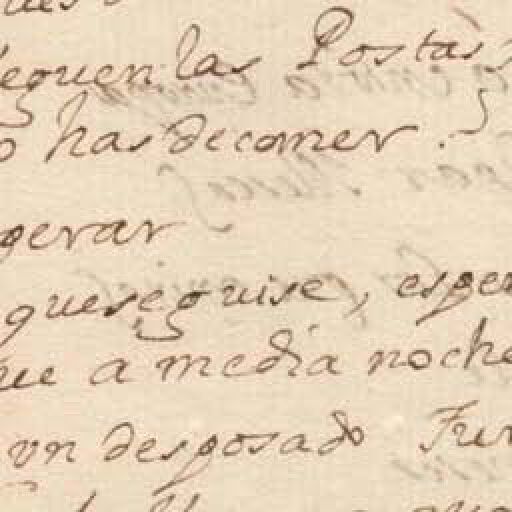 leguen las Postas,
o has de comer.
perar
que se guise, esper
que a media noche
un desposado Fer